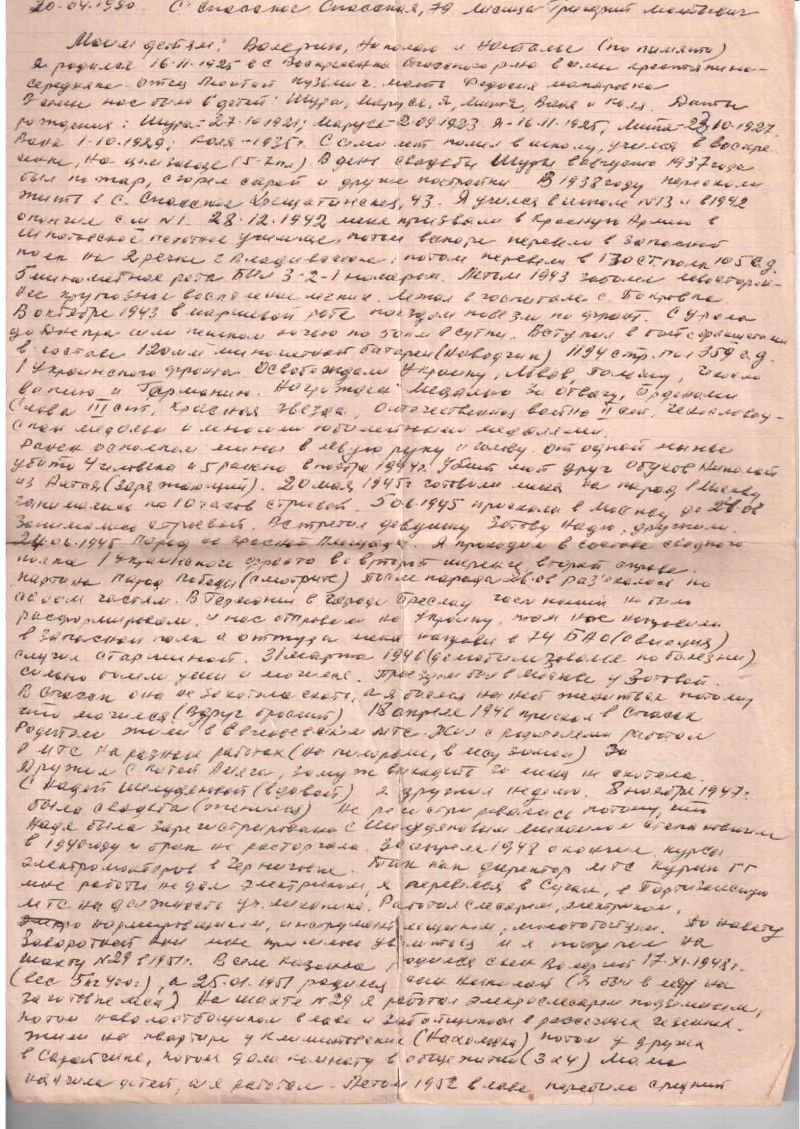 20-04-1990. с. Спасское Спасская, 79. Лисица Григорий Моисеевич
Моим детям: Валерию, Николаю и Наталье (по памяти)
Я родился 16-11-1925 в с Воскресенка Спасского р-на в семье крестьянина-
середняка. Отец Моисей Кузьмич. мать Федосия Макаровна
В семье нас было 6 детей: Шура, Маруся, Я, Митя, Ваня и Коля. Даты
рождения: Шура-27-10-1921; Маруся-2-09-1923 Я-16-11-1925; Митя-23-10-1927.
Ваня 1-10-1929; Коля-1935г. С семи лет пошел в школу, учился в Воскре-
сенке, на цемзаводе (5-7кл). В день свадьбы Шуры в августе 1937 года
был пожар, сгорел сарай и другие постройки В 1938 году переехали
жить в с. Спасское Хрещатинская, 43. Я учился в школе №13 и в 1942
окончил с ш №1. 28.12.1942 меня призвали в Красную Армию в
пехотное училище, потом вскоре перевели в запасной
полк на 2 речке г Владивостока, потом перевели в 1 зост. полк 105 с.д.
5 минометная рота БМ 3-2-1 номером. Летом 1943 заболел левосторон-
нее крупозное воспаление легких. Лежал в госпитале с. Покровка
В октябре 1943 в маршевой роте поездом повезли на фронт. С
до Днепра шли пешком ночью по 50км в сутки. Вступил в бой
в составе 120мм минометной батареи (Наводчик) 1194 стр. полк 359 с.д.
1 Украинского фронта Освобождали Украину, Львов, Польшу, Чехосло-
вакию и Германию. Награжден: Медалью За отвагу, Орденами
Слава III ст, Красная Звезда, Отечественная война II ст, Чехословац-
кой медалью и многими юбилейными медалями.
Ранен осколком мины в левую руку и голову. От одной мины
убито 4 человека и 5 ранено в 1944г. Убит мой друг Обухов Николай
из Алтая (заряжающий). 20 мая 1945г готовили меня на парад в Москву
занимались по 10 часов строевой. 5 06.1945 приехали в Москву до
Занимались строевой. Встретил девушку Зотову Надю, дружили.
24.06.1945 парад на Красной площади. Я проходил в составе сводного
полка 1 Украинского фронта во второй шеренге второй справа.
картина Парад Победы (смотрите) После парада разъехались по
своим частям. В Германии в городе Бреслау часть нашей не было
расформировали, и нас отправили на Украину, там нас направили
в запасной полк а оттуда меня направили в 74 БАО (авиация)
служил старшиной. 31 марта 1946 (демобилизовался по болезни)
сильно болели уши и могилке. Проездом был в Москве у Зотовой.
В Спасск она не захотела ехать, а я боялся на ней жениться потому
что (Вдруг бросит) 18 апреля 1946 приехал в Спасск
Родители жили в МТС. Жил с родителями работал
в МТС на разных работах (на пилораме, в лесу зимой) За
Дружил с Катей, замуж выходить за меня не хотела.
С Надей (вдовой) я дружил недолго. 8 ноября 1947г.
была свадьба (женился) не регистрировались потому, что
Надя была зарегистрирована с
в 1946 году и брак не расторгала. 30 апреля 1948 окончил курсы
электромонтеров в Черниговке. Так как директор МТС Курин Г Г
мне работы не дал электриком, я перевелся в Сучан, в Партизанскую
МТС на должность уч. механика. Работал слесарем, электриком,
нормировщиком, инструментальщиком, По навету
мне пришлось уволиться и я поступил на
шахту №29 в 1951г. В селе Казанка родился сын Валерий 17-XI-1948г.
(вес 5кг 400г), а 25-01-1951 родился сын Николай (я был в лесу на
заготовке леса) На шахте №29 я работал электрослесарем подземным,
потом навалоотбойщиком в лаве и забойщиком в рассечных печенках.
жили на квартире у (Находка) потом у друга
в Сарайчике, потом дали комнату в общежитии (3х4) Мама
нянчила детей, а я работал - Летом 1952 в лаве перебило средний